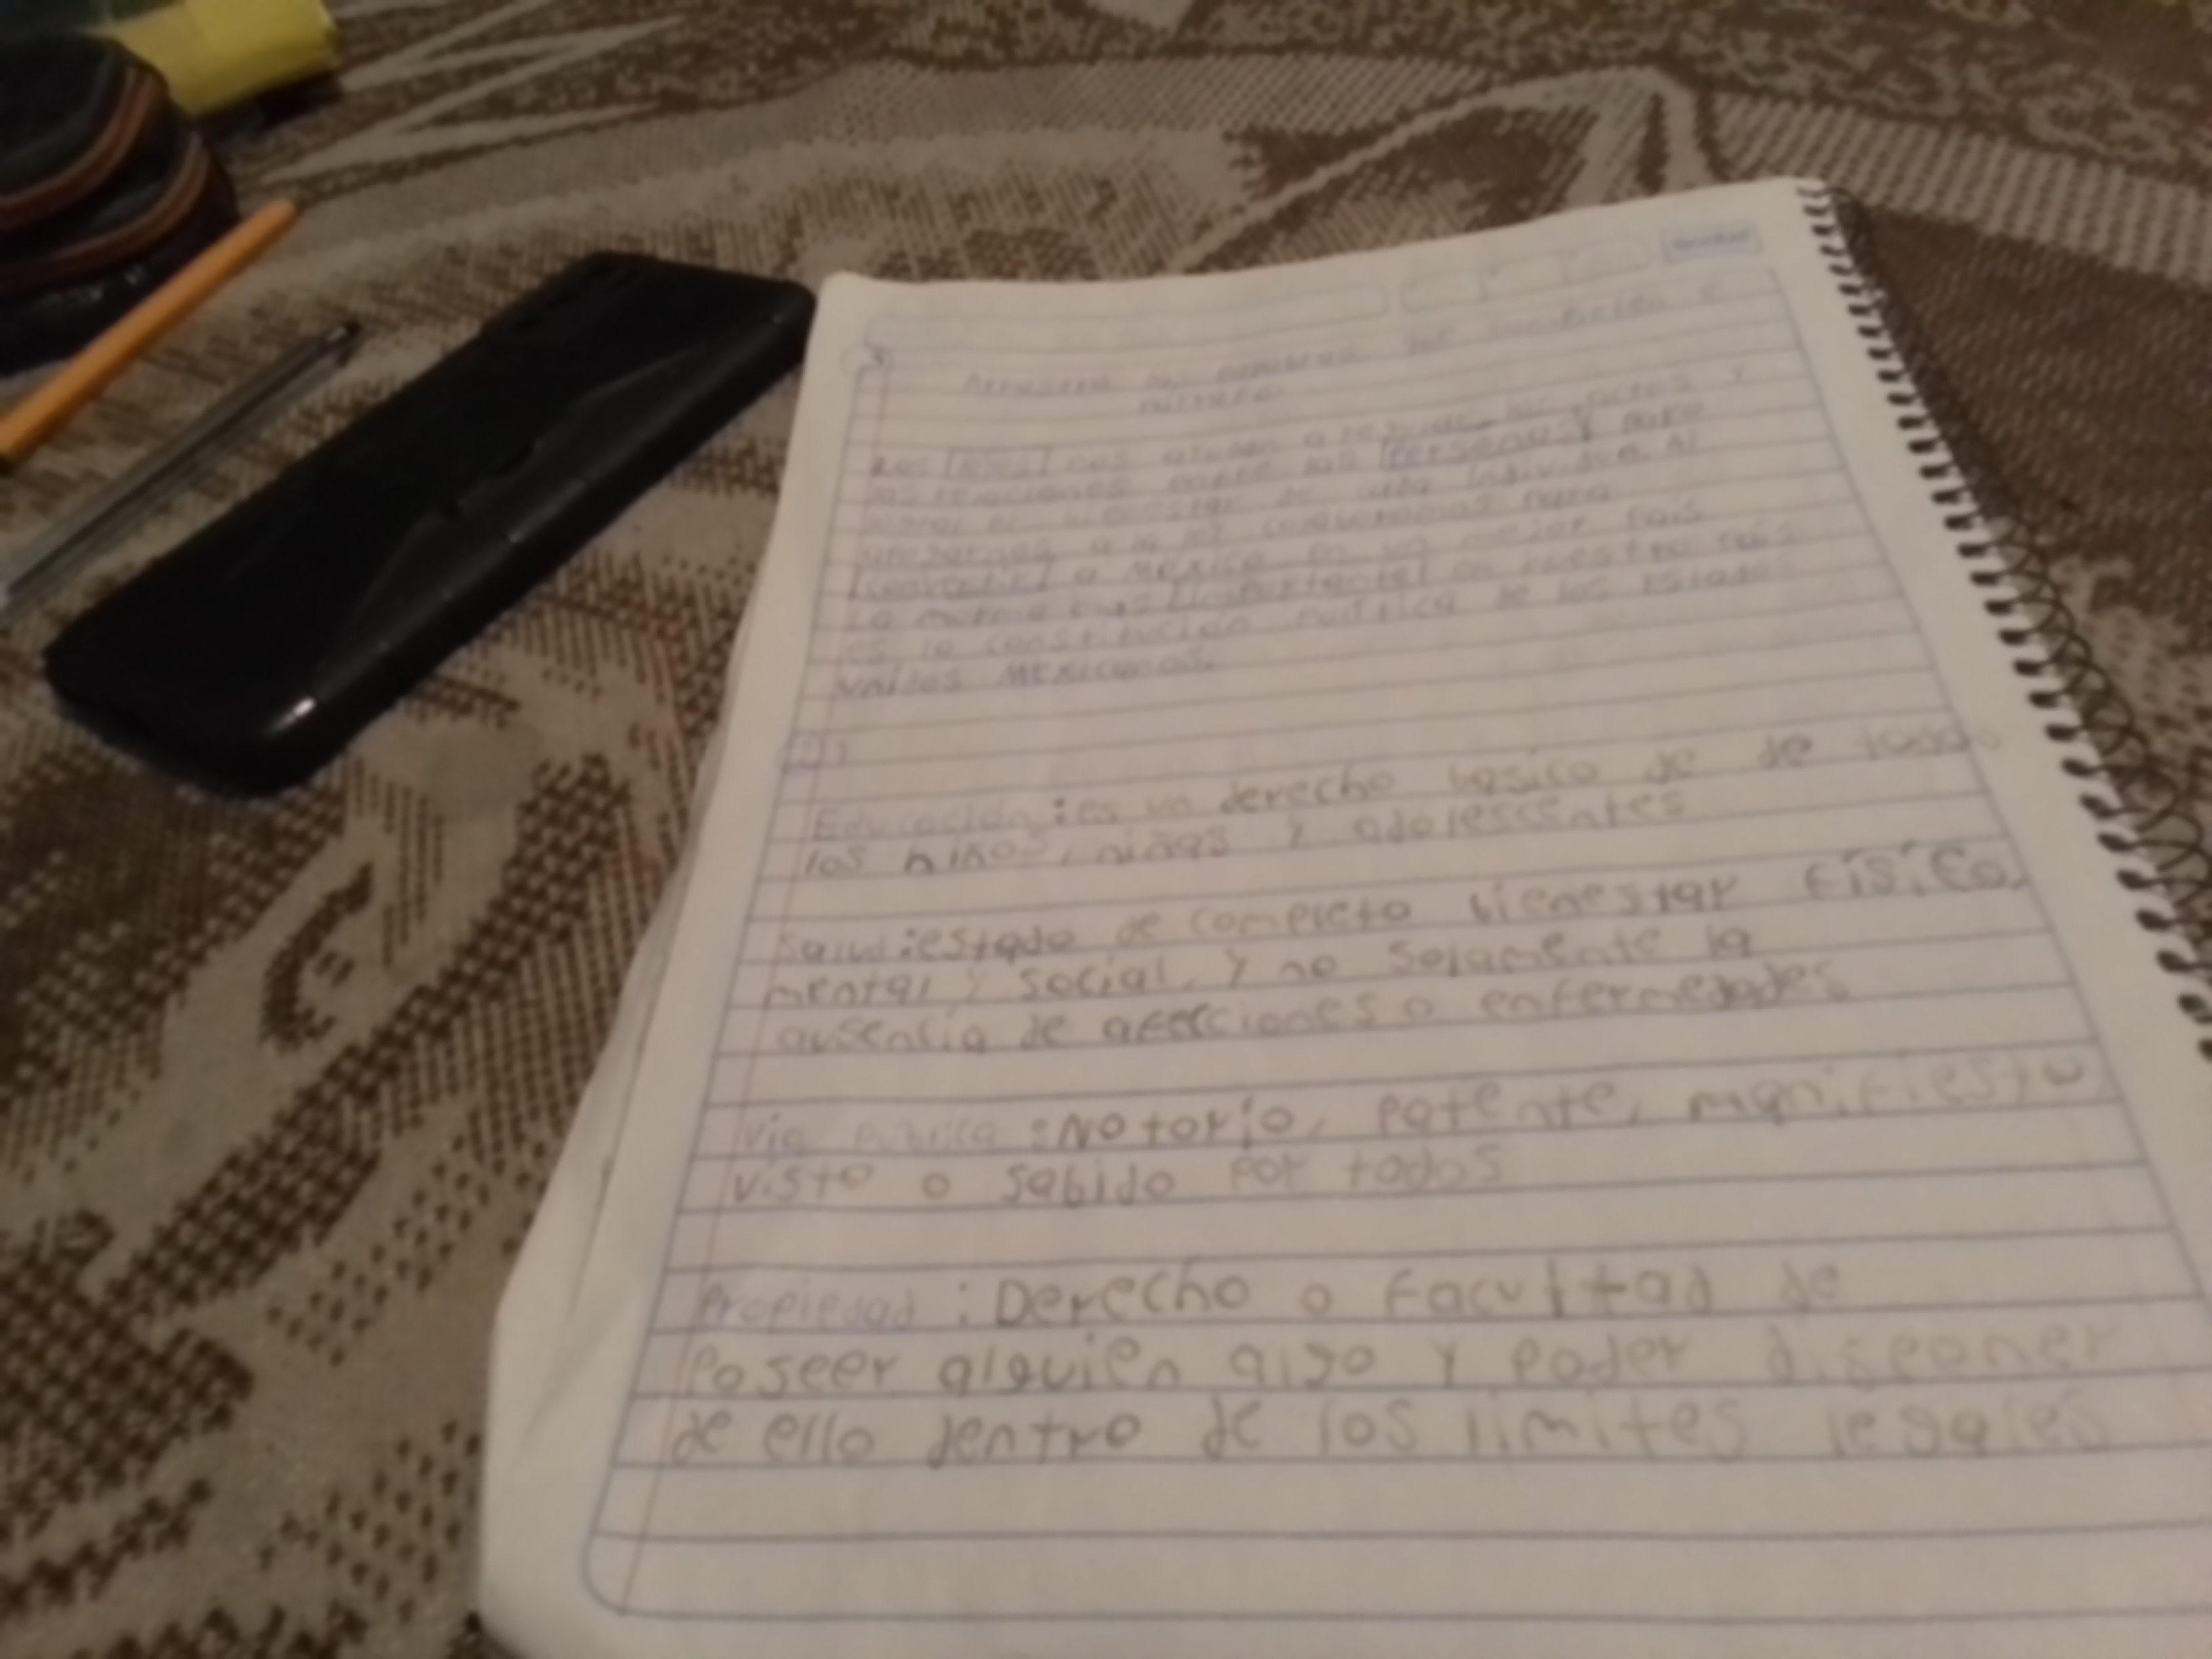 las leyes nos ayudan a regular los actos y
las relaciones entre las personas y para
el bienestar de cada individuo. Al
apegarnos a la ley para
convertir a México en un mejor País
La norma importante en nuestro País
es la constitución Política de los Estados
unidos Mexicanos.
Educación: es un derecho basico de de todos
los niños, niñas y adolescentes
Salud: estado de completo bienestar físico,
mental y social, y no solamente la
ausencia de afecciones o enfermedades
Via publica: Notorio, patente, manifiesto,
visto o sabido por todos
Propiedad: Derecho o facultad de
Poseer alguien algo y poder disponer
de ello dentro de los limites legales